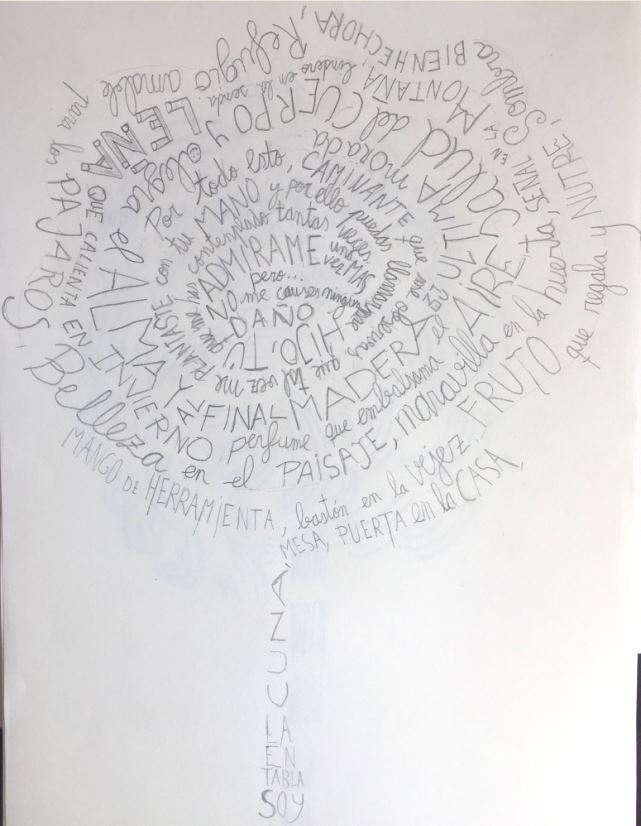 SOY
TABLA
EN
LA
CUNA,
MESA, PUERTA en la CASA,
MANGO DE HERRAMIENTA, bastón en la vejez.
FRUTO que regala y NUTRE, Sombra BIENHECHORA, Refugio amable para los PAJAROS,
Belleza en el PAISAJE, maravilla en la huerta, SEÑAL EN LA MONTAÑA, lindero en la senda.
LEÑA QUE CALIENTA EN INVIERNO perfume que embalsama el AIRE,
Salud del CUERPO y alegria el ALMA Y AL FINAL MADERA ULTIMA morada
Por todo esto, CAMINANTE que me observas, que tal vez me PLANTASTE con tu MANO y por ello puedas llamarme HIJO, TÚ,
que me tantas veces, una vez MAS
ADMIRAME
pero...
NO me causes ningún
DAÑO